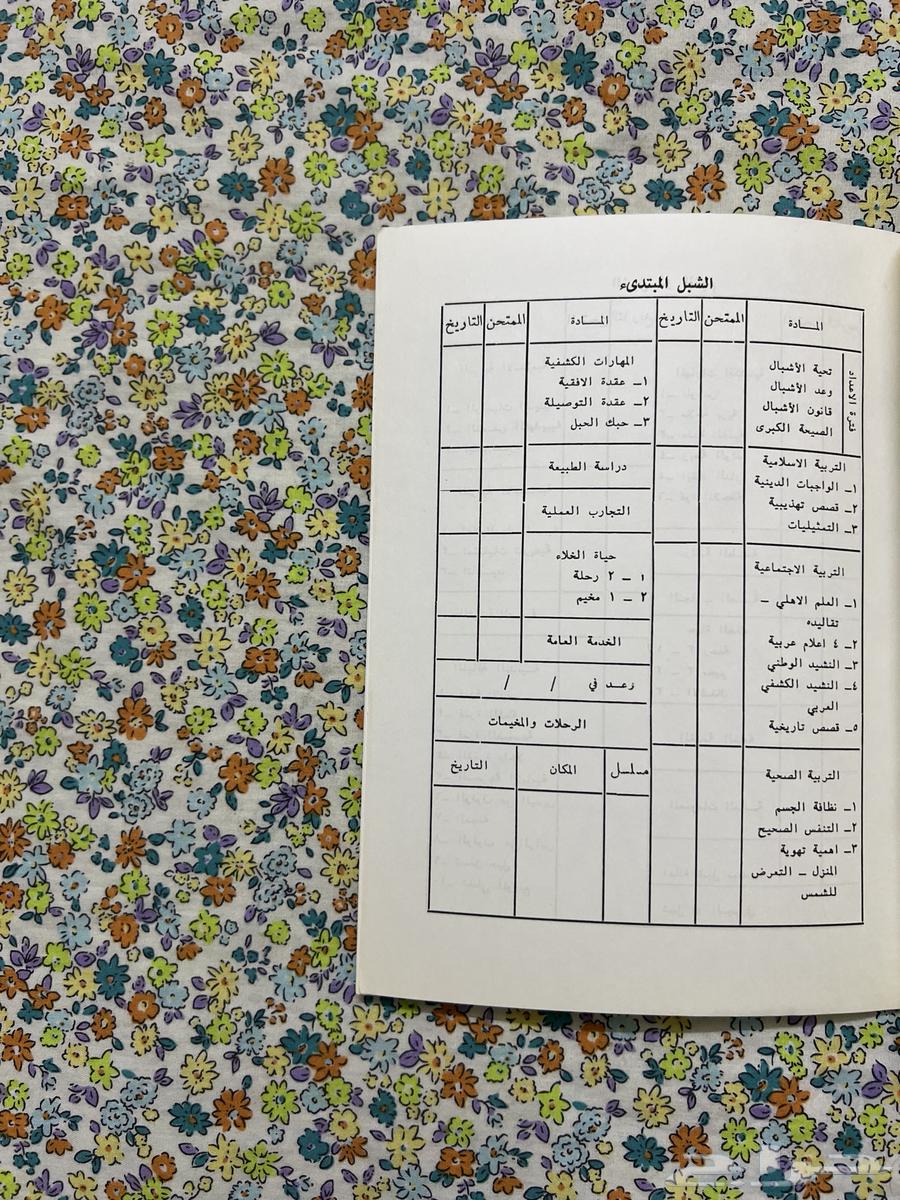 الشبل المبتدىء
المــادة الممتحن التاريخ
فترة الاعداد
تحية الأشبال
وعد الأشبال
قانون الأشبال
الصيحة الكبرى
التربية الاسلامية
١ــ الواجبات الدينية
٢ــ قصص تهذيبية
٣ــ التمثيليات
التربية الاجتماعية
١ــ العلم الاهلي ــ
تقاليده
٢ــ ٤ اعلام عربية
٣ــ النشيد الوطني
٤ــ النشيد الكشفي
العربي
٥ــ قصص تاريخية
التربية الصحية
١ــ نظافة الجسم
٢ــ التنفس الصحيح
٣ــ اهمية تهوية
المنزل ــ التعرض
للشمس
المــادة الممتحن التاريخ
المهارات الكشفية
١ــ عقدة الافقية
٢ــ عقدة التوصيلة
٣ــ حبك الحبل
دراسة الطبيعة
التجارب العملية
حياة الخلاء
١ ــ ٢ رحلة
٢ ــ ١ مخيم
الخدمة العامة
وعـد في / /
الرحلات والمخيمات
مسلسل المكان التاريخ
حراج